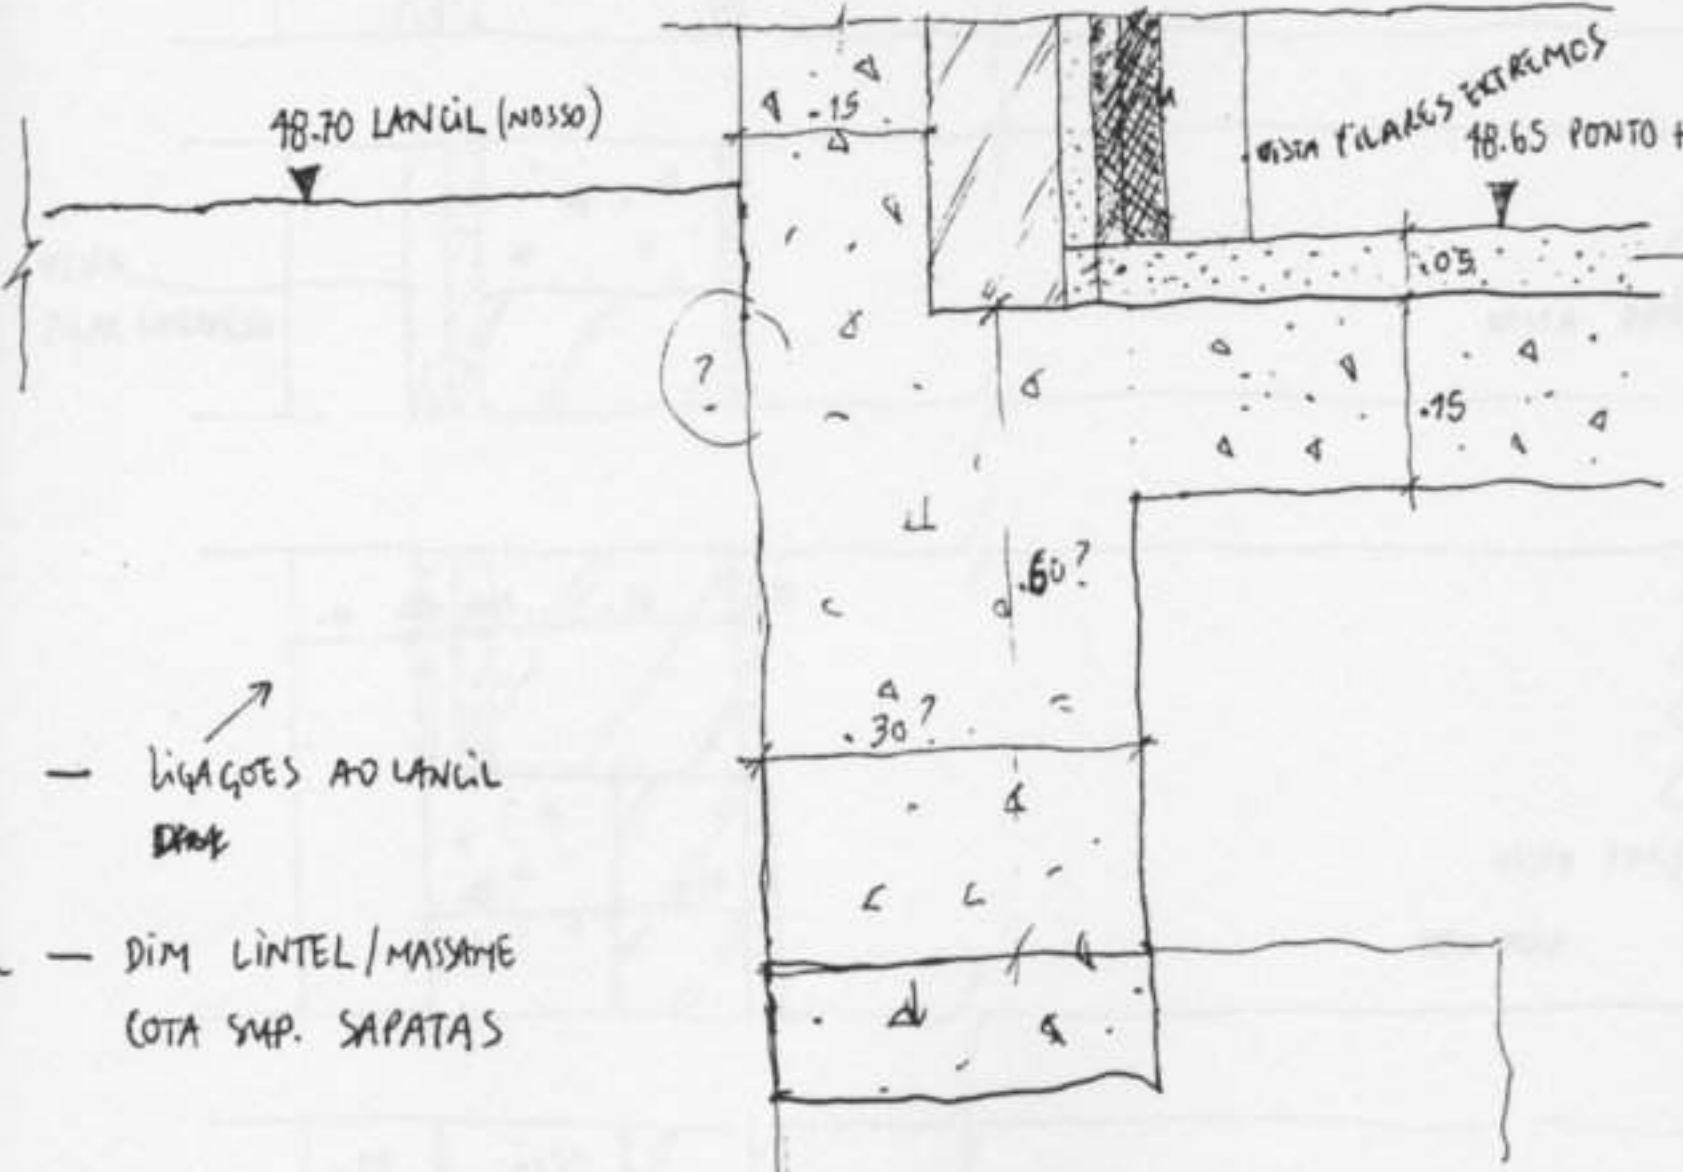 .15
48.70 LANCIL (NOSSO)
VISTA PILARES EXTREMOS
48.65 PONTO
.05
?
.15
.60?
.30?
— LIGAÇÕES AO LANCIL
— DIM LINTEL/MASSAME
COTA SUP. SAPATAS